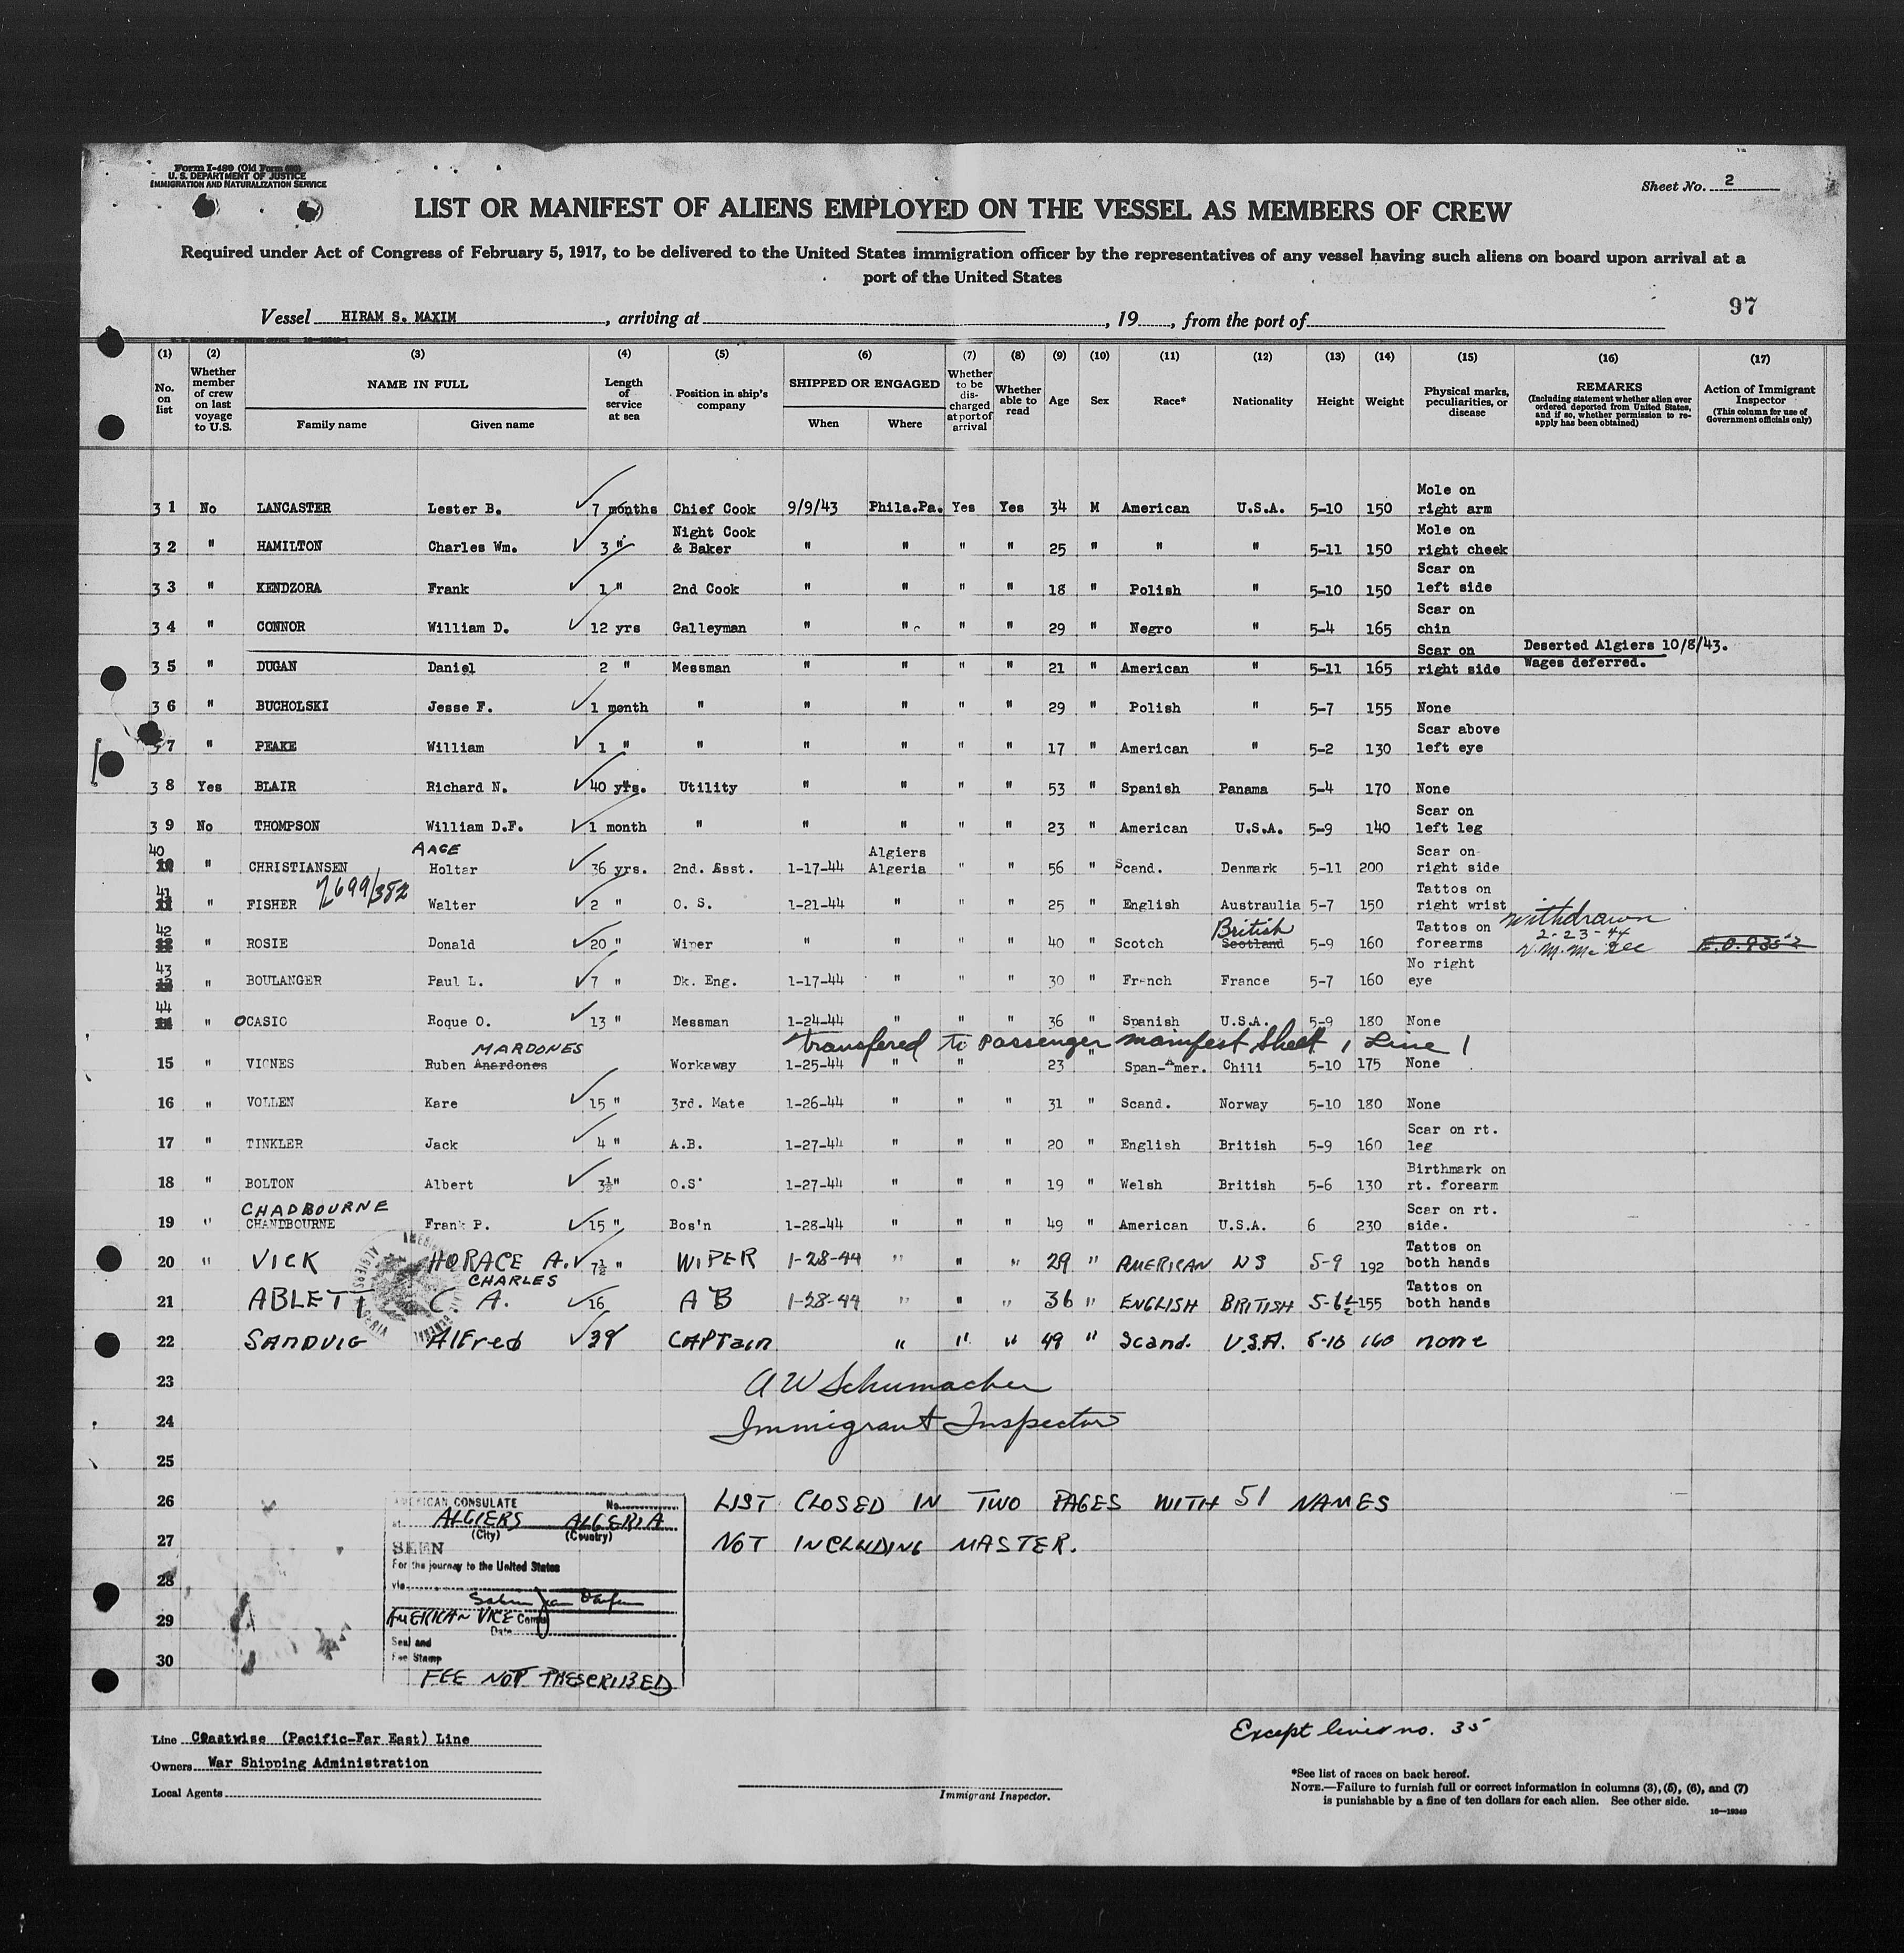 Form I-489 (Old Form 689)
U. S. DEPARTMENT OF JUSTICE
IMMIGRATION AND NATURALIZATION SERVICE
Sheet No. 2
LIST OR MANIFEST OF ALIENS EMPLOYED ON THE VESSEL AS MEMBERS OF CREW
Required under Act of Congress of February 5, 1917, to be delivered to the United States immigration officer by the representatives of any vessel having such aliens on board upon arrival at a
port of the United States
97
Vessel HIRAM S. MAXIM, arriving at , 19 , from the port of
(1) (2) (3) (4) (5) (6) (7) (8) (9) (10) (11) (12) (13) (14) (15) (16) (17)
No. on list
Whether member of crew on last voyage to U.S.
NAME IN FULL
Family name Given name
Length of service at sea
Position in ship's company
SHIPPED OR ENGAGED
When Where
Whether to be discharged at port of arrival
Whether able to read
Age
Sex
Race*
Nationality
Height
Weight
Physical marks, peculiarities, or disease
REMARKS
(Including statement whether alien ever ordered deported from United States, and if so, whether permission to re-apply has been obtained)
Action of Immigrant Inspector
(This column for use of Government officials only)
31 No LANCASTER Lester B. 7 months Chief Cook 9/9/43 Phila.Pa. Yes Yes 34 M American U.S.A. 5-10 150 Mole on right arm
32 " HAMILTON Charles Wm. 3 " Night Cook & Baker " " " " 25 " " " 5-11 150 Mole on right cheek
33 " KENDZORA Frank 1 " 2nd Cook " " " " 18 " Polish " 5-10 150 Scar on left side
34 " CONNOR William D. 12 yrs Galleyman " " " " 29 " Negro " 5-4 165 Scar on chin
35 " DUGAN Daniel 2 " Messman " " " " 21 " American " 5-11 165 Scar on right side Deserted Algiers 10/8/43. Wages deferred.
36 " BUCHOLSKI Jesse F. 1 month " " " " " 29 " Polish " 5-7 155 None
37 " PEAKE William 1 " " " " " " 17 " American " 5-2 130 Scar above left eye
38 Yes BLAIR Richard N. 40 yrs. Utility " " " " 53 " Spanish Panama 5-4 170 None
39 No THOMPSON William D.F. 1 month " " " " " 23 " American U.S.A. 5-9 140 Scar on left leg
AAGE
40 " CHRISTIANSEN Holter 36 yrs. 2nd. Asst. 1-17-44 Algiers Algeria " " 56 " Scand. Denmark 5-11 200 Scar on right side
7699/382
41 " FISHER Walter 2 " O. S. 1-21-44 " " " 25 " English Austraulia 5-7 150 Tattos on right wrist
42 " ROSIE Donald 20 " Wiper " " " " 40 " Scotch Scotland British 5-9 160 Tattos on forearms Withdrawn 2-23-44
43 " BOULANGER Paul L. 7 " Dk. Eng. 1-17-44 " " " 30 " French France 5-7 160 No right eye
44 " OCASIO Roque O. 13 " Messman 1-24-44 " " " 36 " Spanish U.S.A. 5-9 180 None
transfered to passenger manifest sheet 1 Line 1
MARDONES
15 " VIGNES Ruben Anardones Workaway 1-25-44 " " 23 " Span-Amer. Chili 5-10 175 None
16 " VOLLEN Kare 15 " 3rd. Mate 1-26-44 " " " 31 " Scand. Norway 5-10 180 None
17 " TINKLER Jack 4 " A.B. 1-27-44 " " " 20 " English British 5-9 160 Scar on rt. leg
18 " BOLTON Albert 3½" O.S' 1-27-44 " " " 19 " Welsh British 5-6 130 Birthmark on rt. forearm
CHADBOURNE
19 " CHANDBOURNE Frank P. 15 " Bos'n 1-28-44 " " " 49 " American U.S.A. 6 230 Scar on rt. side.
20 " VICK HORACE A. 7½ " WIPER 1-28-44 " " " 29 " AMERICAN US 5-9 192 Tattos on both hands
CHARLES
21 ABLETT C. A. 16 AB 1-28-44 " " " 36 " ENGLISH BRITISH 5-6½ 155 Tattos on both hands
22 SANDVIG Alfred 39 CAPTain " " " 49 " Scand. U.S.A. 5-10 160 none
23 A W Schumacher
24 Immigrant Inspector
25
26 LIST CLOSED IN TWO PAGES WITH 51 NAMES
27 NOT INCLUDING MASTER.
28
29
30
AMERICAN CONSULATE No.
at ALGIERS ALGERIA
(City) (Country)
SEEN
For the journey to the United States
via
AMERICAN VICE Consul
Date
Seal and
Fee Stamp
FEE NOT PRESCRIBED
Except line no. 35
Line Coastwise (Pacific-Far East) Line
Owners War Shipping Administration
Local Agents
Immigrant Inspector.
*See list of races on back hereof.
NOTE.—Failure to furnish full or correct information in columns (3), (5), (6), and (7)
is punishable by a fine of ten dollars for each alien. See other side.
16—19349